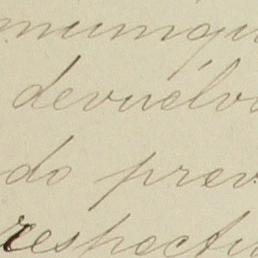 muniqu
devuélva
do prev
respectiv